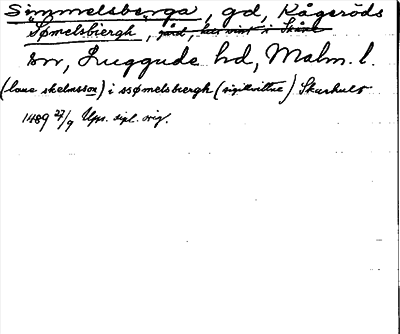 Simmelsberga, gd, Kågeröds
"Sømelsbiergh", gård, i Skåne
sn, Luggude hd, Malm. l.
(laue skelnsson) i ssømelsbiergh (sigillvittne) Skarhult
1489 27/9 Ups. dipl. orig.